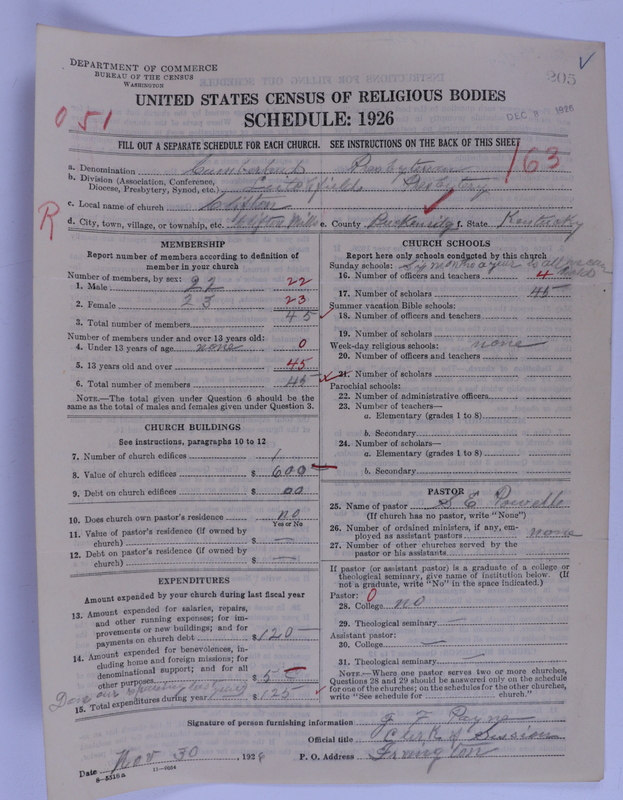 DEPARTMENT OF COMMERCE
BUREAU OF THE CENSUS
WASHINGTON
205
DEC 8 1926
UNITED STATES CENSUS OF RELIGIOUS BODIES
SCHEDULE: 1926
051
FILL OUT A SEPARATE SCHEDULE FOR EACH CHURCH. SEE INSTRUCTIONS ON THE BACK OF THIS SHEET
163
a. Denomination Cumberland Presbyterian
b. Division (Association, Conference, Diocese, Presbytery, Synod, etc.) Leitchfield Presbytery
c. Local name of church Clifton
R
d. City, town, village, or township, etc. Clifton Mills e. County Breckenridge f. State Kentucky
MEMBERSHIP
Report number of members according to definition of member in your church
Number of members, by sex:
1. Male 22 22
2. Female 23 23
3. Total number of members 45
Number of members under and over 13 years old:
4. Under 13 years of age none 0
5. 13 years old and over 45
6. Total number of members 45
NOTE.—The total given under Question 6 should be the same as the total of males and females given under Question 3.
CHURCH BUILDINGS
See instructions, paragraphs 10 to 12
7. Number of church edifices 1
8. Value of church edifices $ 600
9. Debt on church edifices $ 00
10. Does church own pastor's residence no
Yes or No
11. Value of pastor's residence (if owned by church) $ —
12. Debt on pastor's residence (if owned by church) $ —
EXPENDITURES
Amount expended by your church during last fiscal year
13. Amount expended for salaries, repairs, and other running expenses; for improvements or new buildings; and for payments on church debt $ 120
14. Amount expended for benevolences, including home and foreign missions; for denominational support; and for all other purposes $ 5
Done our repairing last year
15. Total expenditures during year $ 125
CHURCH SCHOOLS
Report here only schools conducted by this church
Sunday schools: Six months a year is all we can hold
16. Number of officers and teachers 4
17. Number of scholars 45
Summer vacation Bible schools:
18. Number of officers and teachers
19. Number of scholars
Week-day religious schools: none
20. Number of officers and teachers
21. Number of scholars
Parochial schools:
22. Number of administrative officers
23. Number of teachers—
a. Elementary (grades 1 to 8)
b. Secondary
24. Number of scholars—
a. Elementary (grades 1 to 8)
b. Secondary
PASTOR
25. Name of pastor S E Powell
(If church has no pastor, write "None")
26. Number of ordained ministers, if any, employed as assistant pastors none
27. Number of other churches served by the pastor or his assistants
If pastor (or assistant pastor) is a graduate of a college or theological seminary, give name of institution below. (If not a graduate, write "No" in the space indicated.)
Pastor: 0
28. College no
29. Theological seminary —
Assistant pastor:
30. College —
31. Theological seminary —
NOTE.—Where one pastor serves two or more churches, Questions 28 and 29 should be answered only on the schedule for one of the churches; on the schedules for the other churches, write "See schedule for church."
Signature of person furnishing information J T Payne
Official title Clerk of Session
Date Nov 30, 1928 P. O. Address Irvington
8—5516a 11—9034